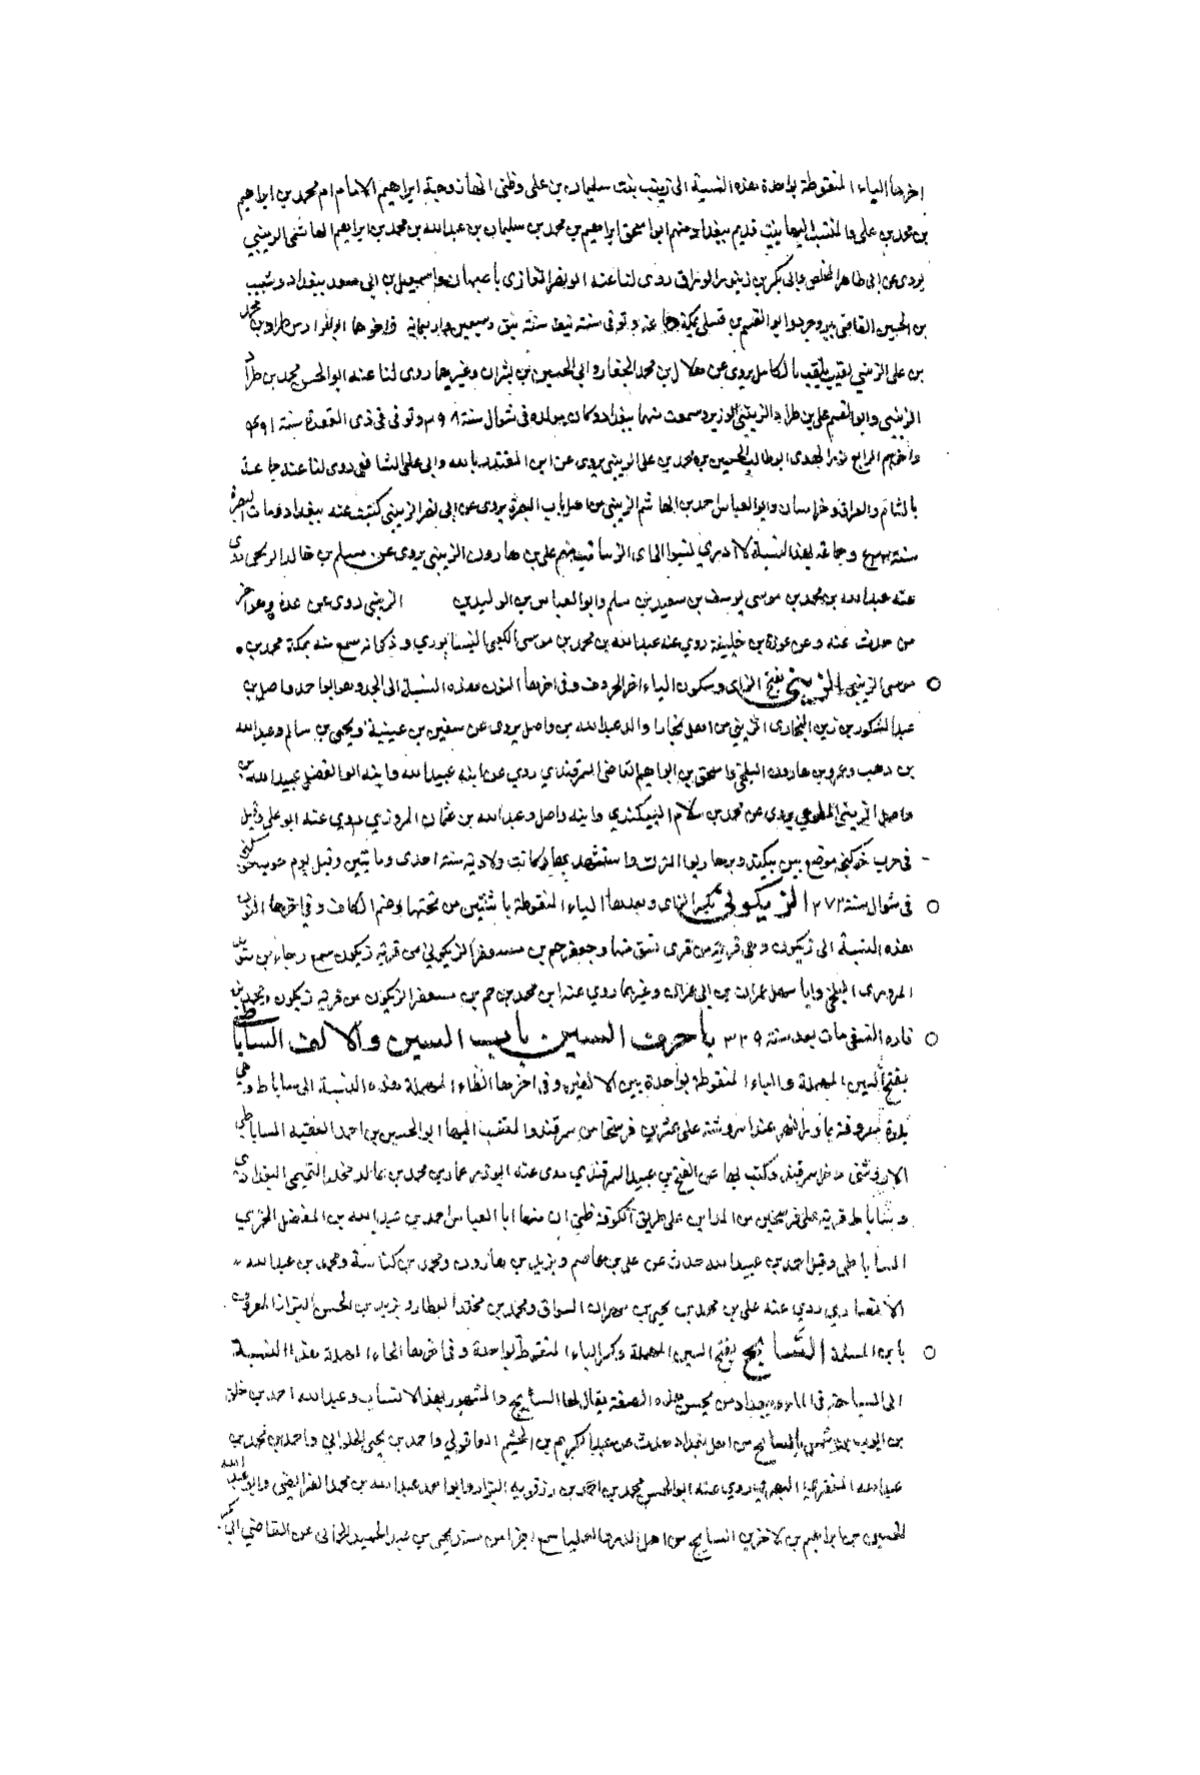 اخرها الياء المنقوطة بواحدة هذه النسبة الى زينب بنت سليمان بن على وظنى انها زوجة ابراهيم الامام ام محمد بن ابراهيم
بن محمد بن على والمنتسب اليها بيت قديم ببغداد منهم ابو اسحق ابراهيم بن محمد بن سليمان بن عبدالله بن محمد بن ابراهيم الهاشمى الزينبي
يروى عن ابى طاهر المخلص وابى بكر بن زنبور الوراق روى لنا عنه ابو نصر الغازى باصبهان واسمعيل بن ابى سعد ببغداد وشبيب
بن الحسين القاضى ببروجرد وابو القسم بن بمكة عنه وتوفى سنة نيف وسبعين واربعمائة واخوهما ابو الفوارس طراد بن محمد
بن على الزينبي نقيب يلقب بالكامل يروى عن هلال بن محمد الحفار وابى الحسين بن بشران وغيرهما روى لنا عنه ابو الحسن محمد بن طراد
الزينبي وابو القسم على بن طراد الزينبي الوزير وسمعت منهما ببغداد وكان مولده فى شوال سنة ٣٩٨ وتوفى فى ذى القعدة سنة ٤٩١
واخوهم الرابع نور الهدى ابو طالب الحسين بن محمد بن على الزينبي يروى عن ابن المقتدر بالله وابى على الشافعى روى لنا عنه جماعة
بالشام والعراق وخراسان وابو العباس احمد بن الهاشم الزينبي من اهل باب البصرة يروى عن ابى نصر الزينبي كتبت عنه ببغداد ومات بالبصرة
سنة وجماعة بهذه النسبة لا ادرى نسبوا الى اى الزيانب منهم على بن هارون الزينبي يروى عن مسلم بن خالد الزنجى روى
عنه عبدالله بن محمد بن موسى يوسف بن سعيد بن مسلم وابو العباس بن الوليد بن الزينبي روى عن عدة وهو اخر
من حدث عنه وعن هوذة بن خليفة روى عنه عبدالله بن محمد بن موسى الكعبى النيسابوري وذكر انه سمع منه بمكة محمد بن
موسى الزينبي الزيني بفتح الزاى وسكون الياء اخر الحروف وفى اخرها النون هذه النسبة الى الجد وهو ابو احمد واصل بن
عبد الشكور بن زين البخارى الزيني من اهل بخارا والد عبدالله بن واصل يروى عن سفين بن عيينة ويحيى بن سالم وعبدالله
بن وهب وعمرو بن هارون البلخى واسحق بن ابراهيم القاضى السمرقندي روى عن ابنه عبيدالله وابنه ابو الفضل عبيدالله بن
واصل الزيني المطوعي يروى عن محمد بن سلام البيكندي وابنه واصل وعبدالله بن عثمان المروزي روى عنه ابو على وقتل
فى حرب موضع بين بيكند و الترك واستشهد بها وكانت ولادته سنة احدى ومايتين وقتل يوم
فى شوال سنة ٢٧٢ الزيكوني بكسر الزاى وبعدها الياء المنقوطة باثنتين من تحتها وضم الكاف وفى اخرها النون
هذه النسبة الى زيكون وهى قرية من قرى نسف منها وجعفر حم بن الزيكوني من قرية زيكون سمع رجاء بن
المروزى البلخى وابا سهل عمران بن ابى عمران وغيرهما روى عنه ابن محمد بن حم بن الزيكون من قرية زيكون
قاره النسفى مات بعد سنة ٣٣٩ باحرف السين باب السين والالف الساباطى
بفتح السين المهملة والباء المنقوطة بواحدة بين الالفين وفى اخرها الطاء المهملة هذه النسبة الى ساباط وهى
بلدة معروفة بما وراء النهر عند اسروشنة على عشرين فرسخا من سمرقند والمنتسب اليها ابو الحسين بن احمد الفقيه الساباطى
دخل سمرقند وكتب بها عن الفتح بن عبيد السمرقندي روى عنه ابو ذر عمار بن محمد بن مخلد التميمى البغدادى
وساباط قرية على فرسخين من المداين على طريق الكوفة ظنى ان منها ابا العباس احمد بن عبيدالله بن المفضل الحميري
الساباطى وقيل احمد بن عبيدالله حدث عن على بن عاصم ويزيد بن هارون ومحمد بن كناسة ومحمد بن عبدالله
الانصاري روى عنه على بن محمد بن يحيى بن مهران السواق ومحمد بن مخلد العطار ويزيد بن الحسن البزاز المعروف
بابن المسلمة السائح بفتح السين المهملة وكسر الياء المنقوطة بواحدة وفى اخرها الحاء المهملة هذه النسبة
الى السباحة فى الماء وببغداد من يحسن هذه الصنعة يقال لها السابح والمشهور بهذا الانتساب وعبدالله احمد بن خلف
بن ايوب السابح من اهل بغداد حدث عن عبد الكريم بن الهيثم العاقولي واحمد بن يحيى الحلواني واحمد بن محمد بن
عبدالله المنقري البصرى روى عنه ابو الحسن محمد بن احمد بن رزقويه البزاز وابو احمد عبدالله بن محمد الفرائضى وابو عبدالله
الحسين بن ابراهيم بن السابح من اهل سمع جزا من مسند يحيى بن عبد الحميد الحمانى عن القاضي ابى